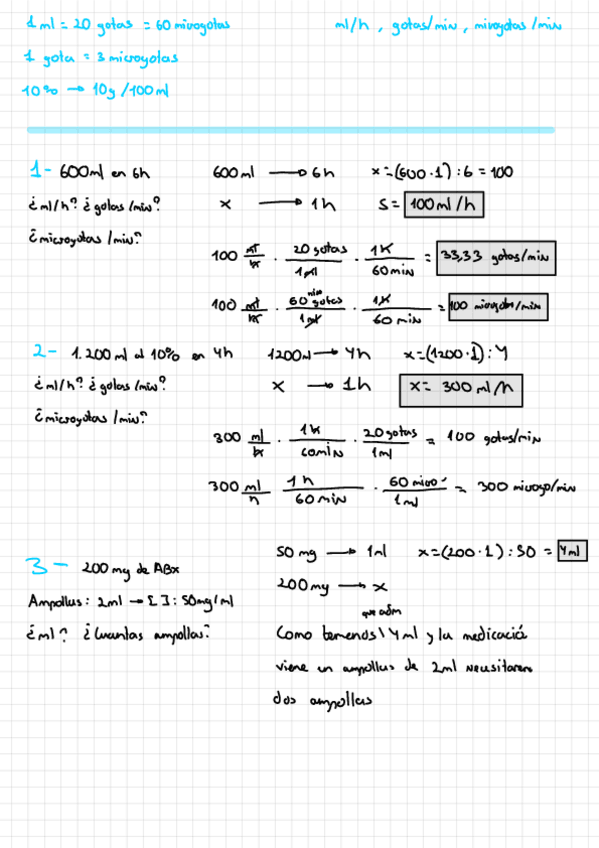 1 ml = 20 gotas = 60 microgotas
ml/h, gotas/min, microgotas/min
1 gota = 3 microgotas
10% → 10g/100ml
1- 600ml en 6h
¿ml/h? ¿gotas/min?
¿microgotas/min?
600 ml → 6h x = (600·1) : 6 = 100
x → 1h S = 100 ml/h
100 ml/h · 20 gotas/1 ml · 1 h/60 min = 33,33 gotas/min
100 ml/h · 60 micro gotas/1 ml · 1 h/60 min = 100 microgotas/min
2- 1.200 ml al 10% en 4h
¿ml/h? ¿gotas/min?
¿microgotas/min?
1200 → 4h x = (1200·1) : 4
x → 1h x = 300 ml/h
300 ml/h · 1h/60 min · 20 gotas/1 ml = 100 gotas/min
300 ml/h · 1 h/60 min · 60 micro/1 ml = 300
3- 200 mg de ABx
Ampollas: 2ml → [ ]: 50mg/ml
¿ml? ¿Cuantas ampollas?
50 mg → 1ml x = (200·1) : 50 = 4ml
200 mg → x
que adm
Como tenemos \ 4 ml y la medicació
viene en ampollas de 2ml
dos ampollas